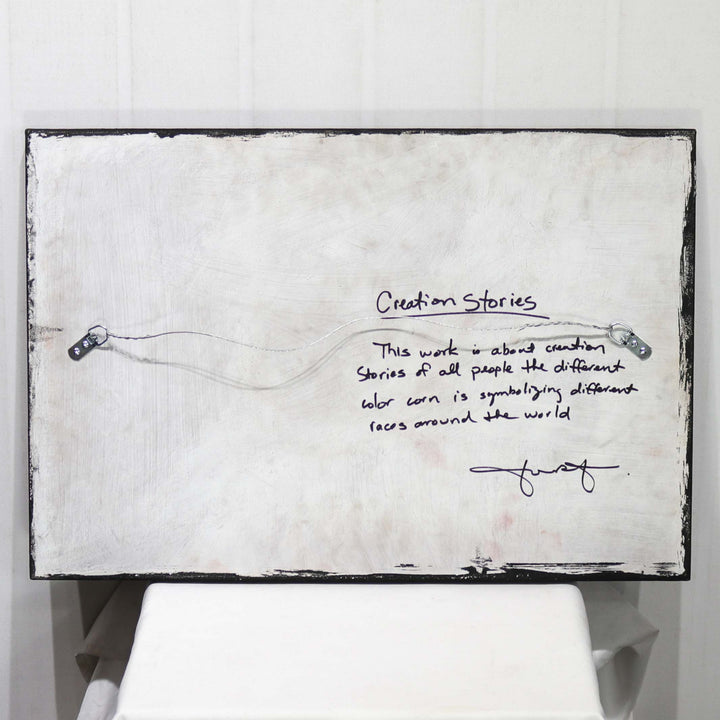 Creation Stories
This work is about creation
Stories of all people the different
color corn is symbolizing different
races around the world